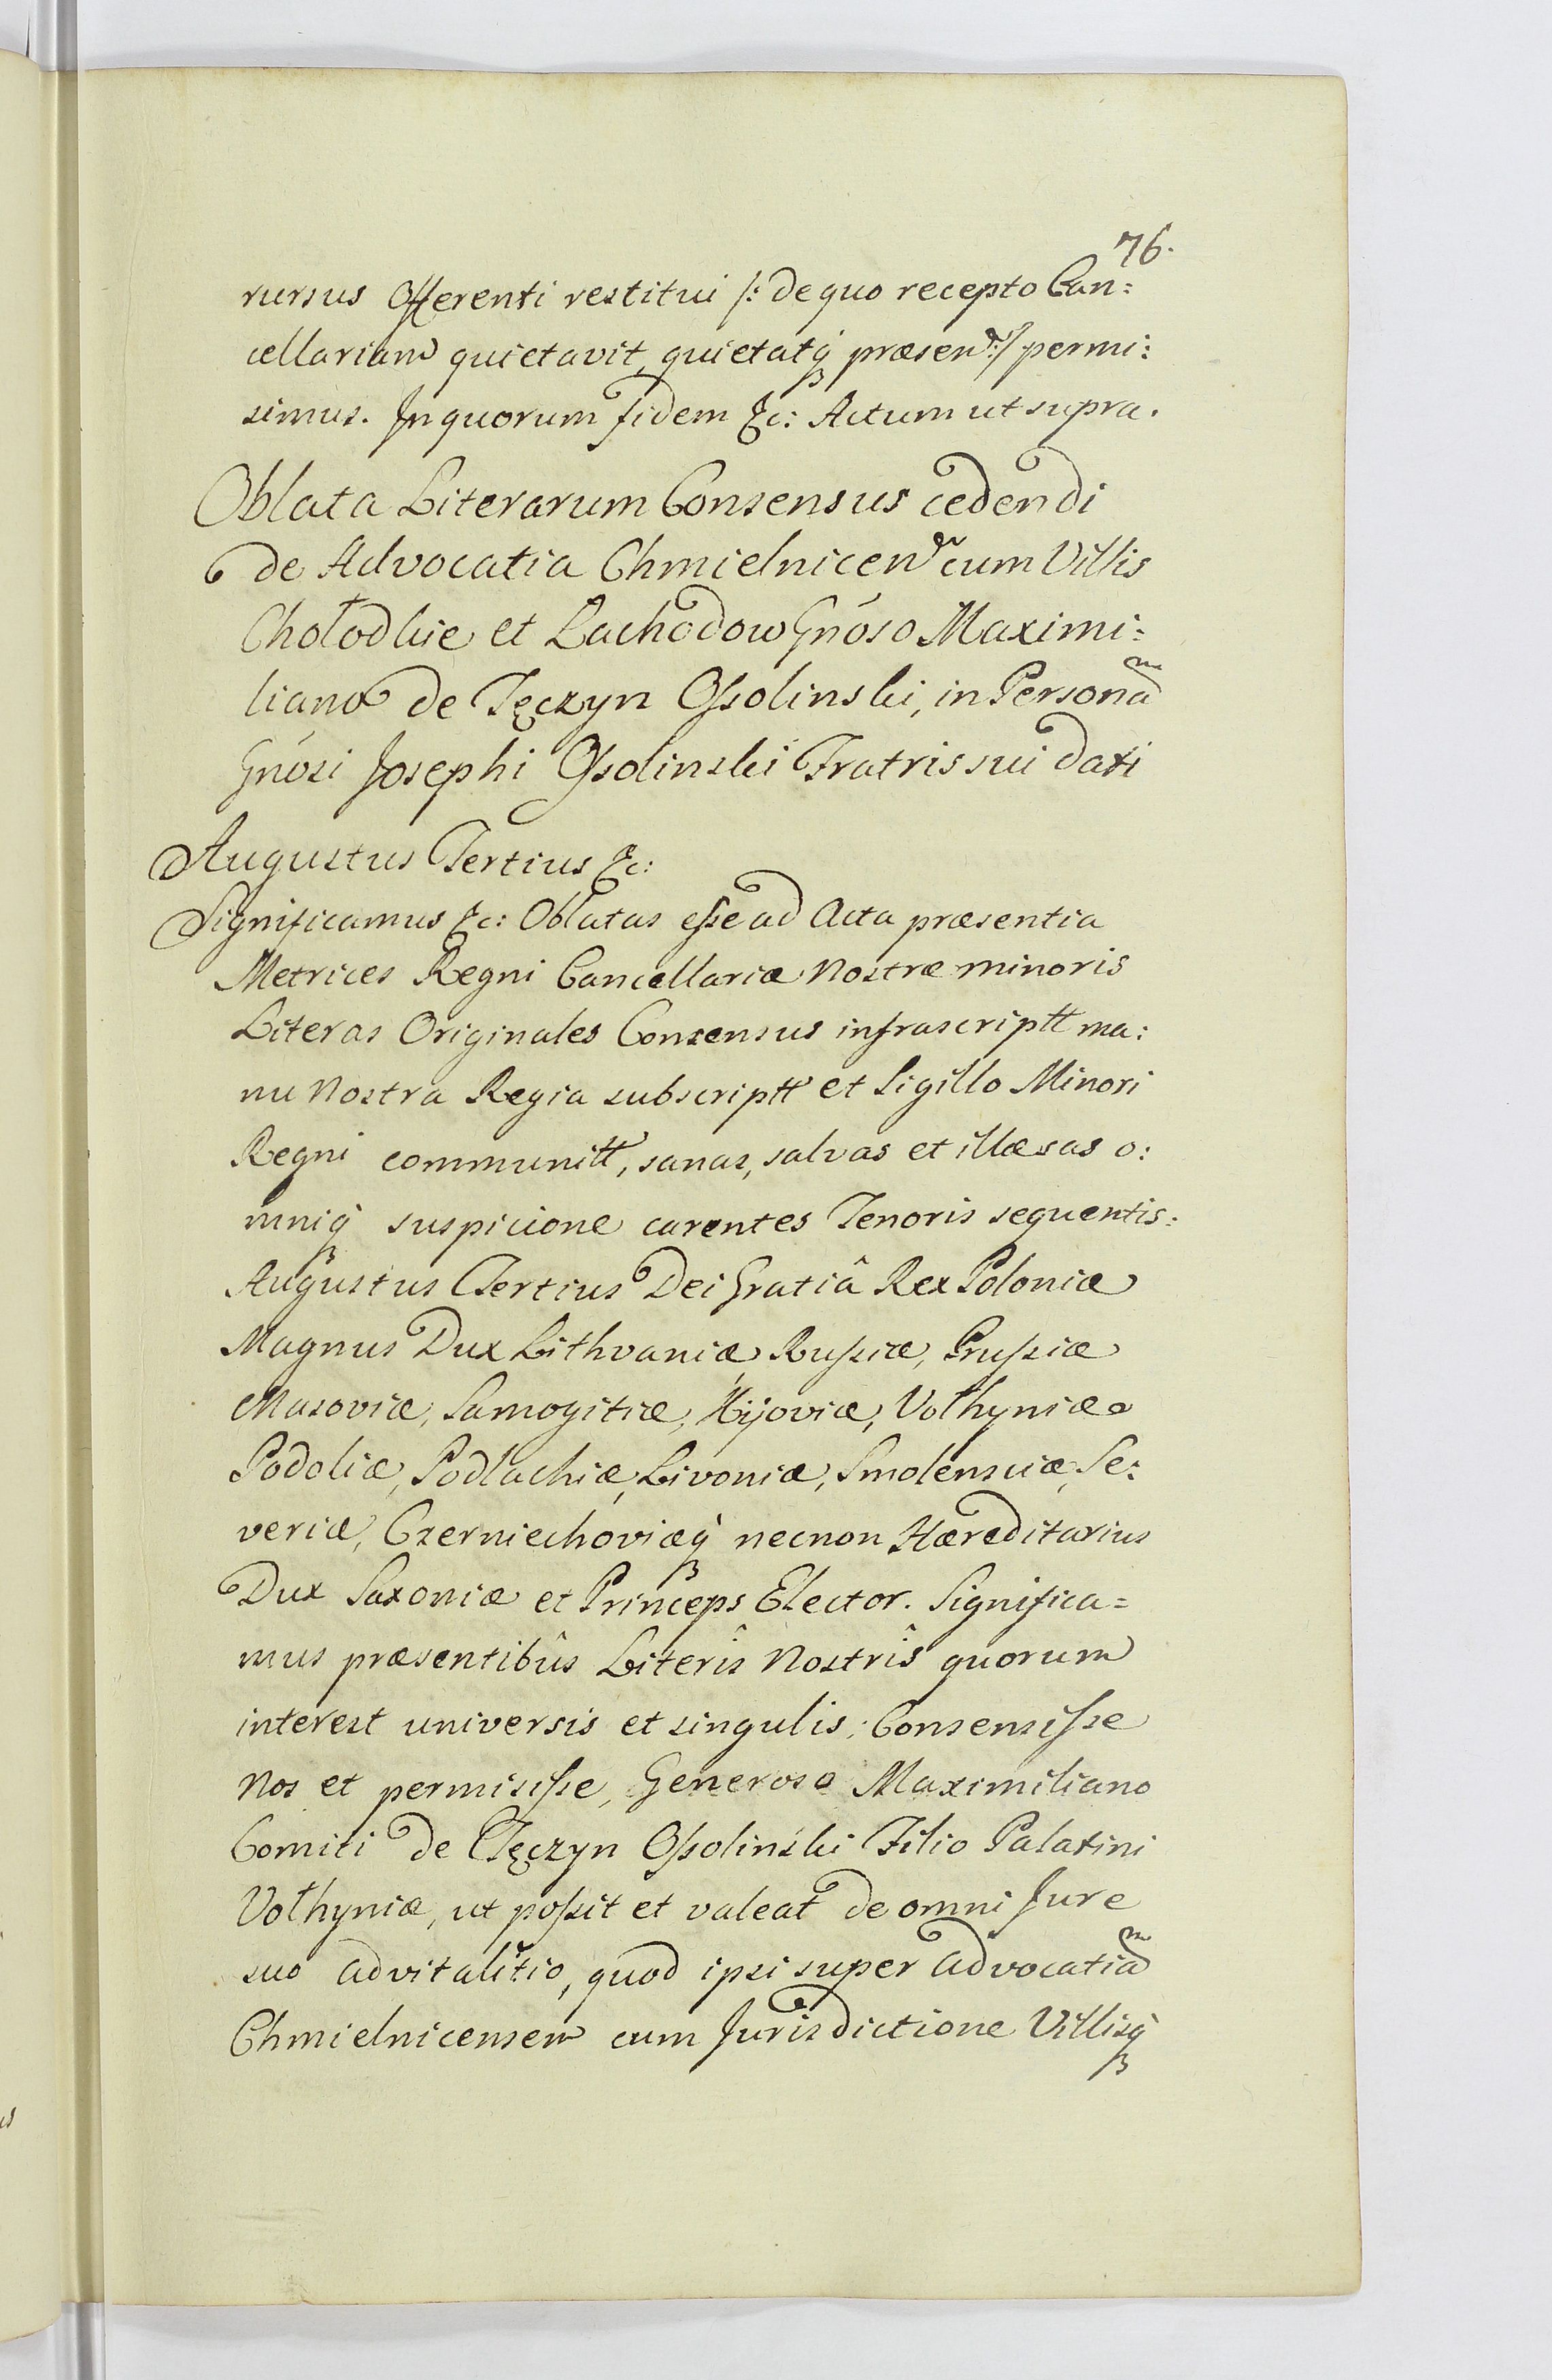 76.
rursus Offerenti restitui /: de quo recepto Can:
cellariam quietavit, quietatq́ꝫ præsen:/ permi:
simus. In quorum fidem &c: Actum ut supra.
Oblata Literarum Consensus cedendi
de Advocatia Chmielnicen cum Villis
Chołodkie et Lachodow Gnóso Maximi:
liano de Tęczyn Ossolinski, in Personam
Gnósi Josephi Ossolinski Fratris sui dati
Augustus Tertius &c:
Significamus &c: Oblatas esse ad Acta præsentia
Metrices Regni Cancellariæ Nostræ minoris
Literas Originales Consensus infrascriptt ma:
nu Nostra Regia subscriptt et Sigillo Minori
Regni communitt, sanas, salvas et illæsas o:
mniq́ꝫ suspicione carentes Tenoris sequentis:
Augustus Tertius Dei Gratiâ Rex Poloniæ
Magnus Dux Lithvaniæ, Russiæ, Prussiæ
Masoviæ, Samogitiæ, Kijoviæ, Vołhyniæ
Podoliæ, Podlachiæ, Livoniæ, Smolensciæ, Se:
veriæ, Czerniechoviæq́ꝫ necnon Hæreditarius
Dux Saxoniæ et Princeps Elector. Significa=
mus præsentibûs Literîs Nostrîs quorum
interest universis et singulis; Consensisse
Nos et permisisse, Generoso Maximiliano
Comiti de Tęczyn Ossolinski Filio Palatini
Vołhyniæ, ut possit et valeat de omni Jure
suo advitalitio, quod ipsi super Advocatiam
Chmielnicensem cum Jurisdictione Villisq́ꝫ